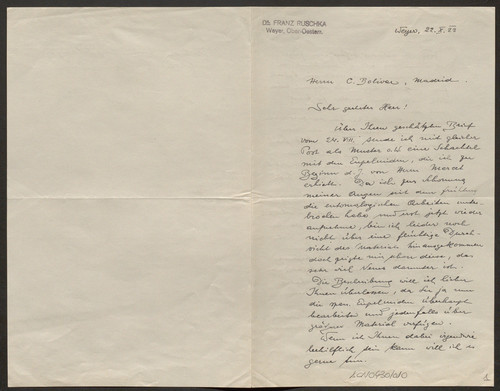 DR. FRANZ RUSCHKA
Weyer, Ober-Donau.
Weyer, 22. X.
Herrn C. Bolivar, Madrid.
Sehr geehrter Herr!
Über Ihren geschätzten Brief
vom 24. VIII. sende ich mit gleicher
Post als Muster o. W. eine Schachtel
mit den Eupelminen, die ich zu
Beginn d. J. von Herrn Marcet
erhielt. Da ich zur Schonung
meiner Augen seit dem Frühling
die entomologischen Arbeiten unter-
brochen habe und erst jetzt wieder
aufnehme, bin ich leider noch
nicht über eine flüchtige Durch-
sicht des Materiales hinausgekommen
doch zeigte mir schon diese, dass
sehr viel Neues darunter ist.
Die Bearbeitung will ich lieber
Ihnen überlassen, da Sie ja nun
die span. Eupelminen überhaupt
bearbeiten und jedenfalls über
grösseres Material verfügen.
Wenn ich Ihnen dabei irgendwie
behilflich sein kann will ich es
gerne tun.